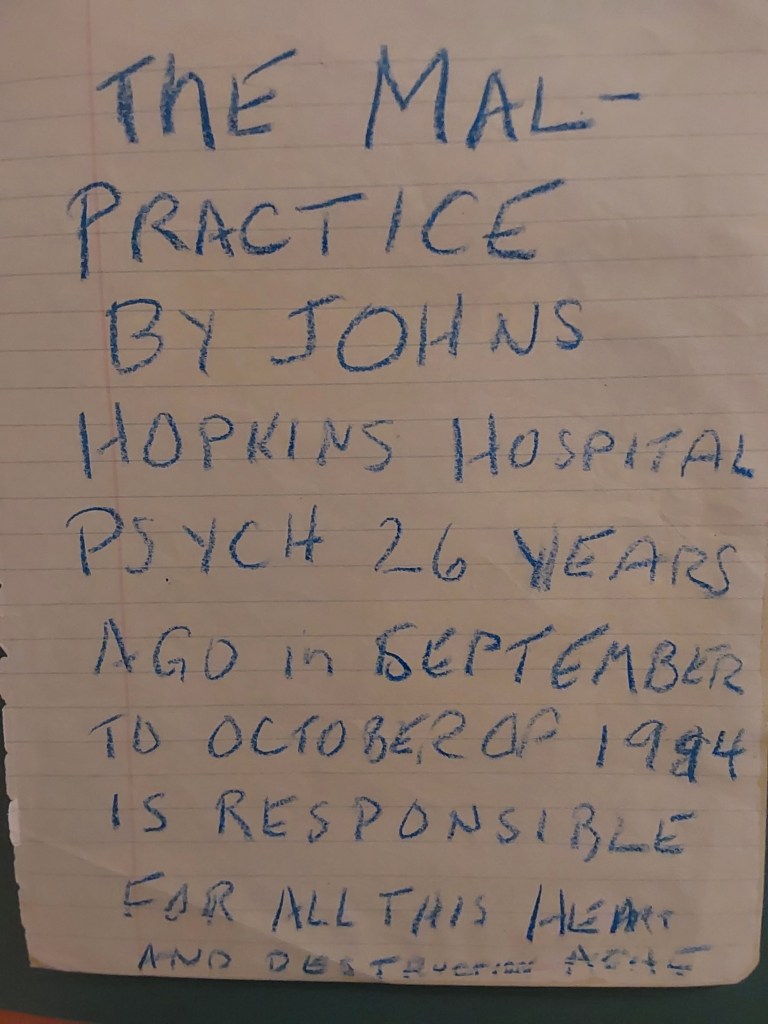 THE MAL-
PRACTICE
BY JOHNS
HOPKINS HOSPITAL
PSYCH 26 YEARS
AGO in SEPTEMBER
TO OCTOBER OF 1994
IS RESPONSIBLE
FOR ALL THIS HEART
AND DESTRUCTION ACHE